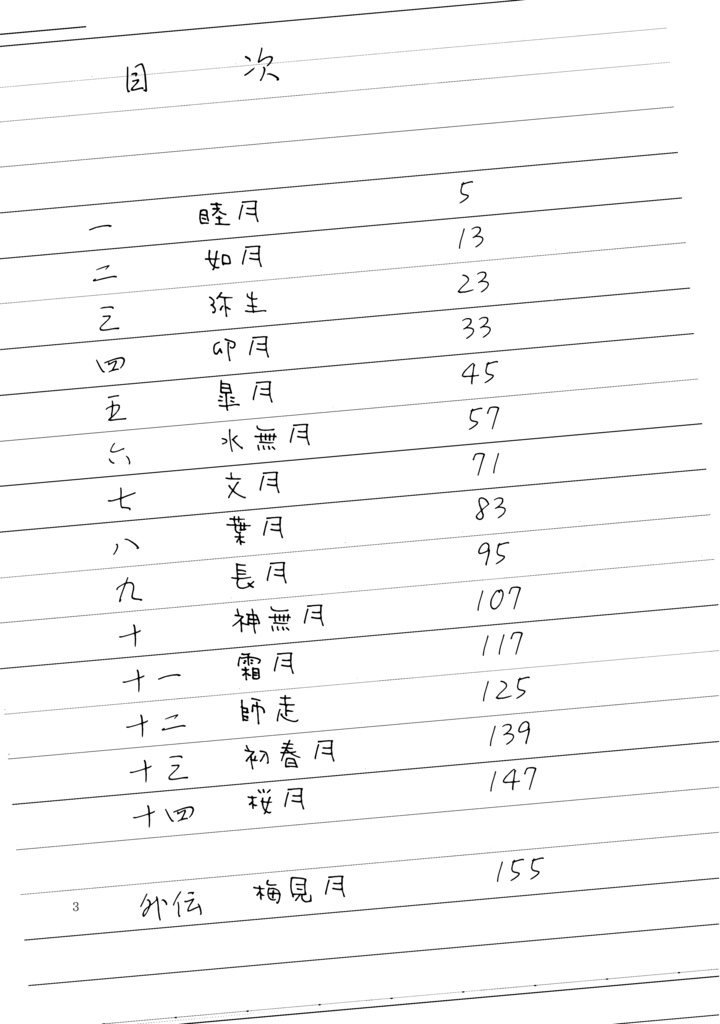 目 次
一 睦月 5
二 如月 13
三 弥生 23
四 卯月 33
五 皐月 45
六 水無月 57
七 文月 71
八 葉月 83
九 長月 95
十 神無月 107
十一 霜月 117
十二 師走 125
十三 初春月 139
十四 桜月 147
外伝 梅見月 155
3